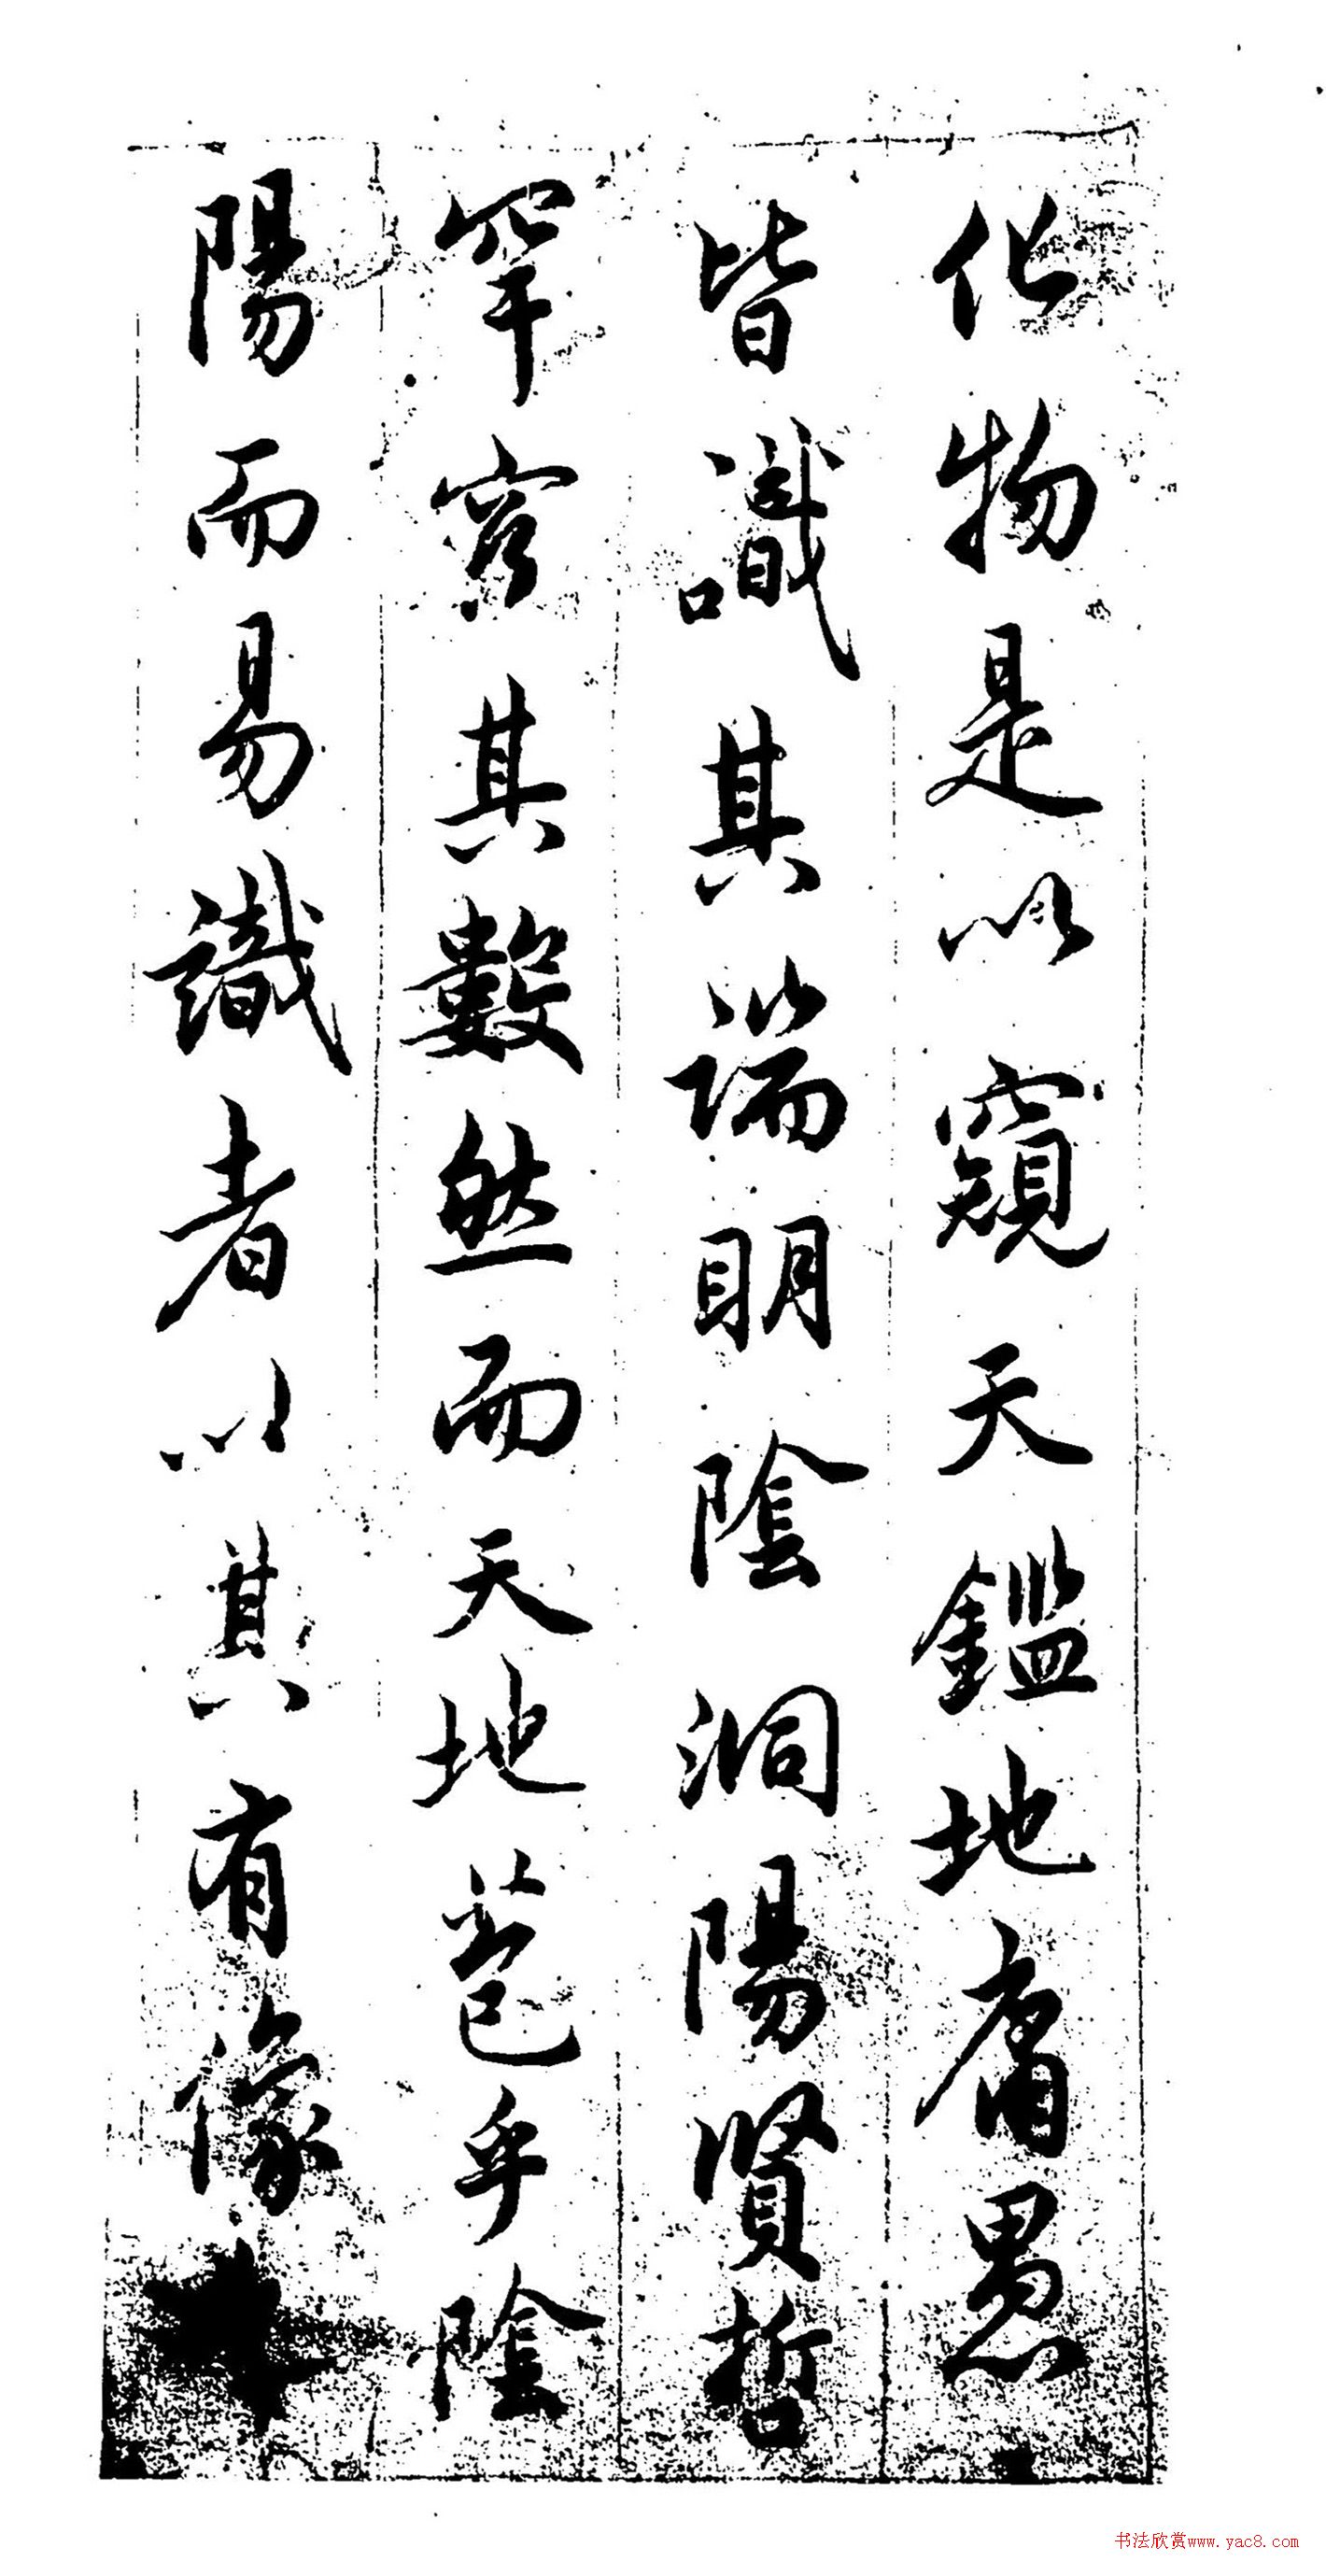 化物是以窺天鑑地庸愚
皆識其端明陰洞陽賢哲
罕窮其數然而天地苞乎陰
陽而易識者以其有像
书法欣赏www.yac8.com